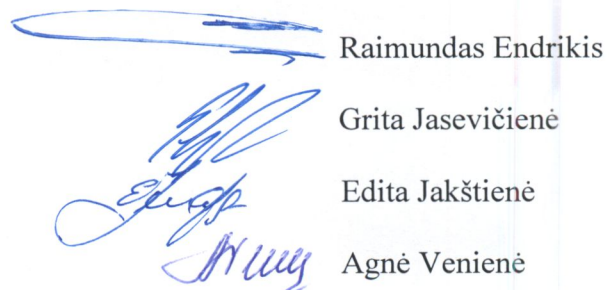 Raimundas Endrikis
Grita Jasevičienė
Edita Jakštienė
Agnė Venienė